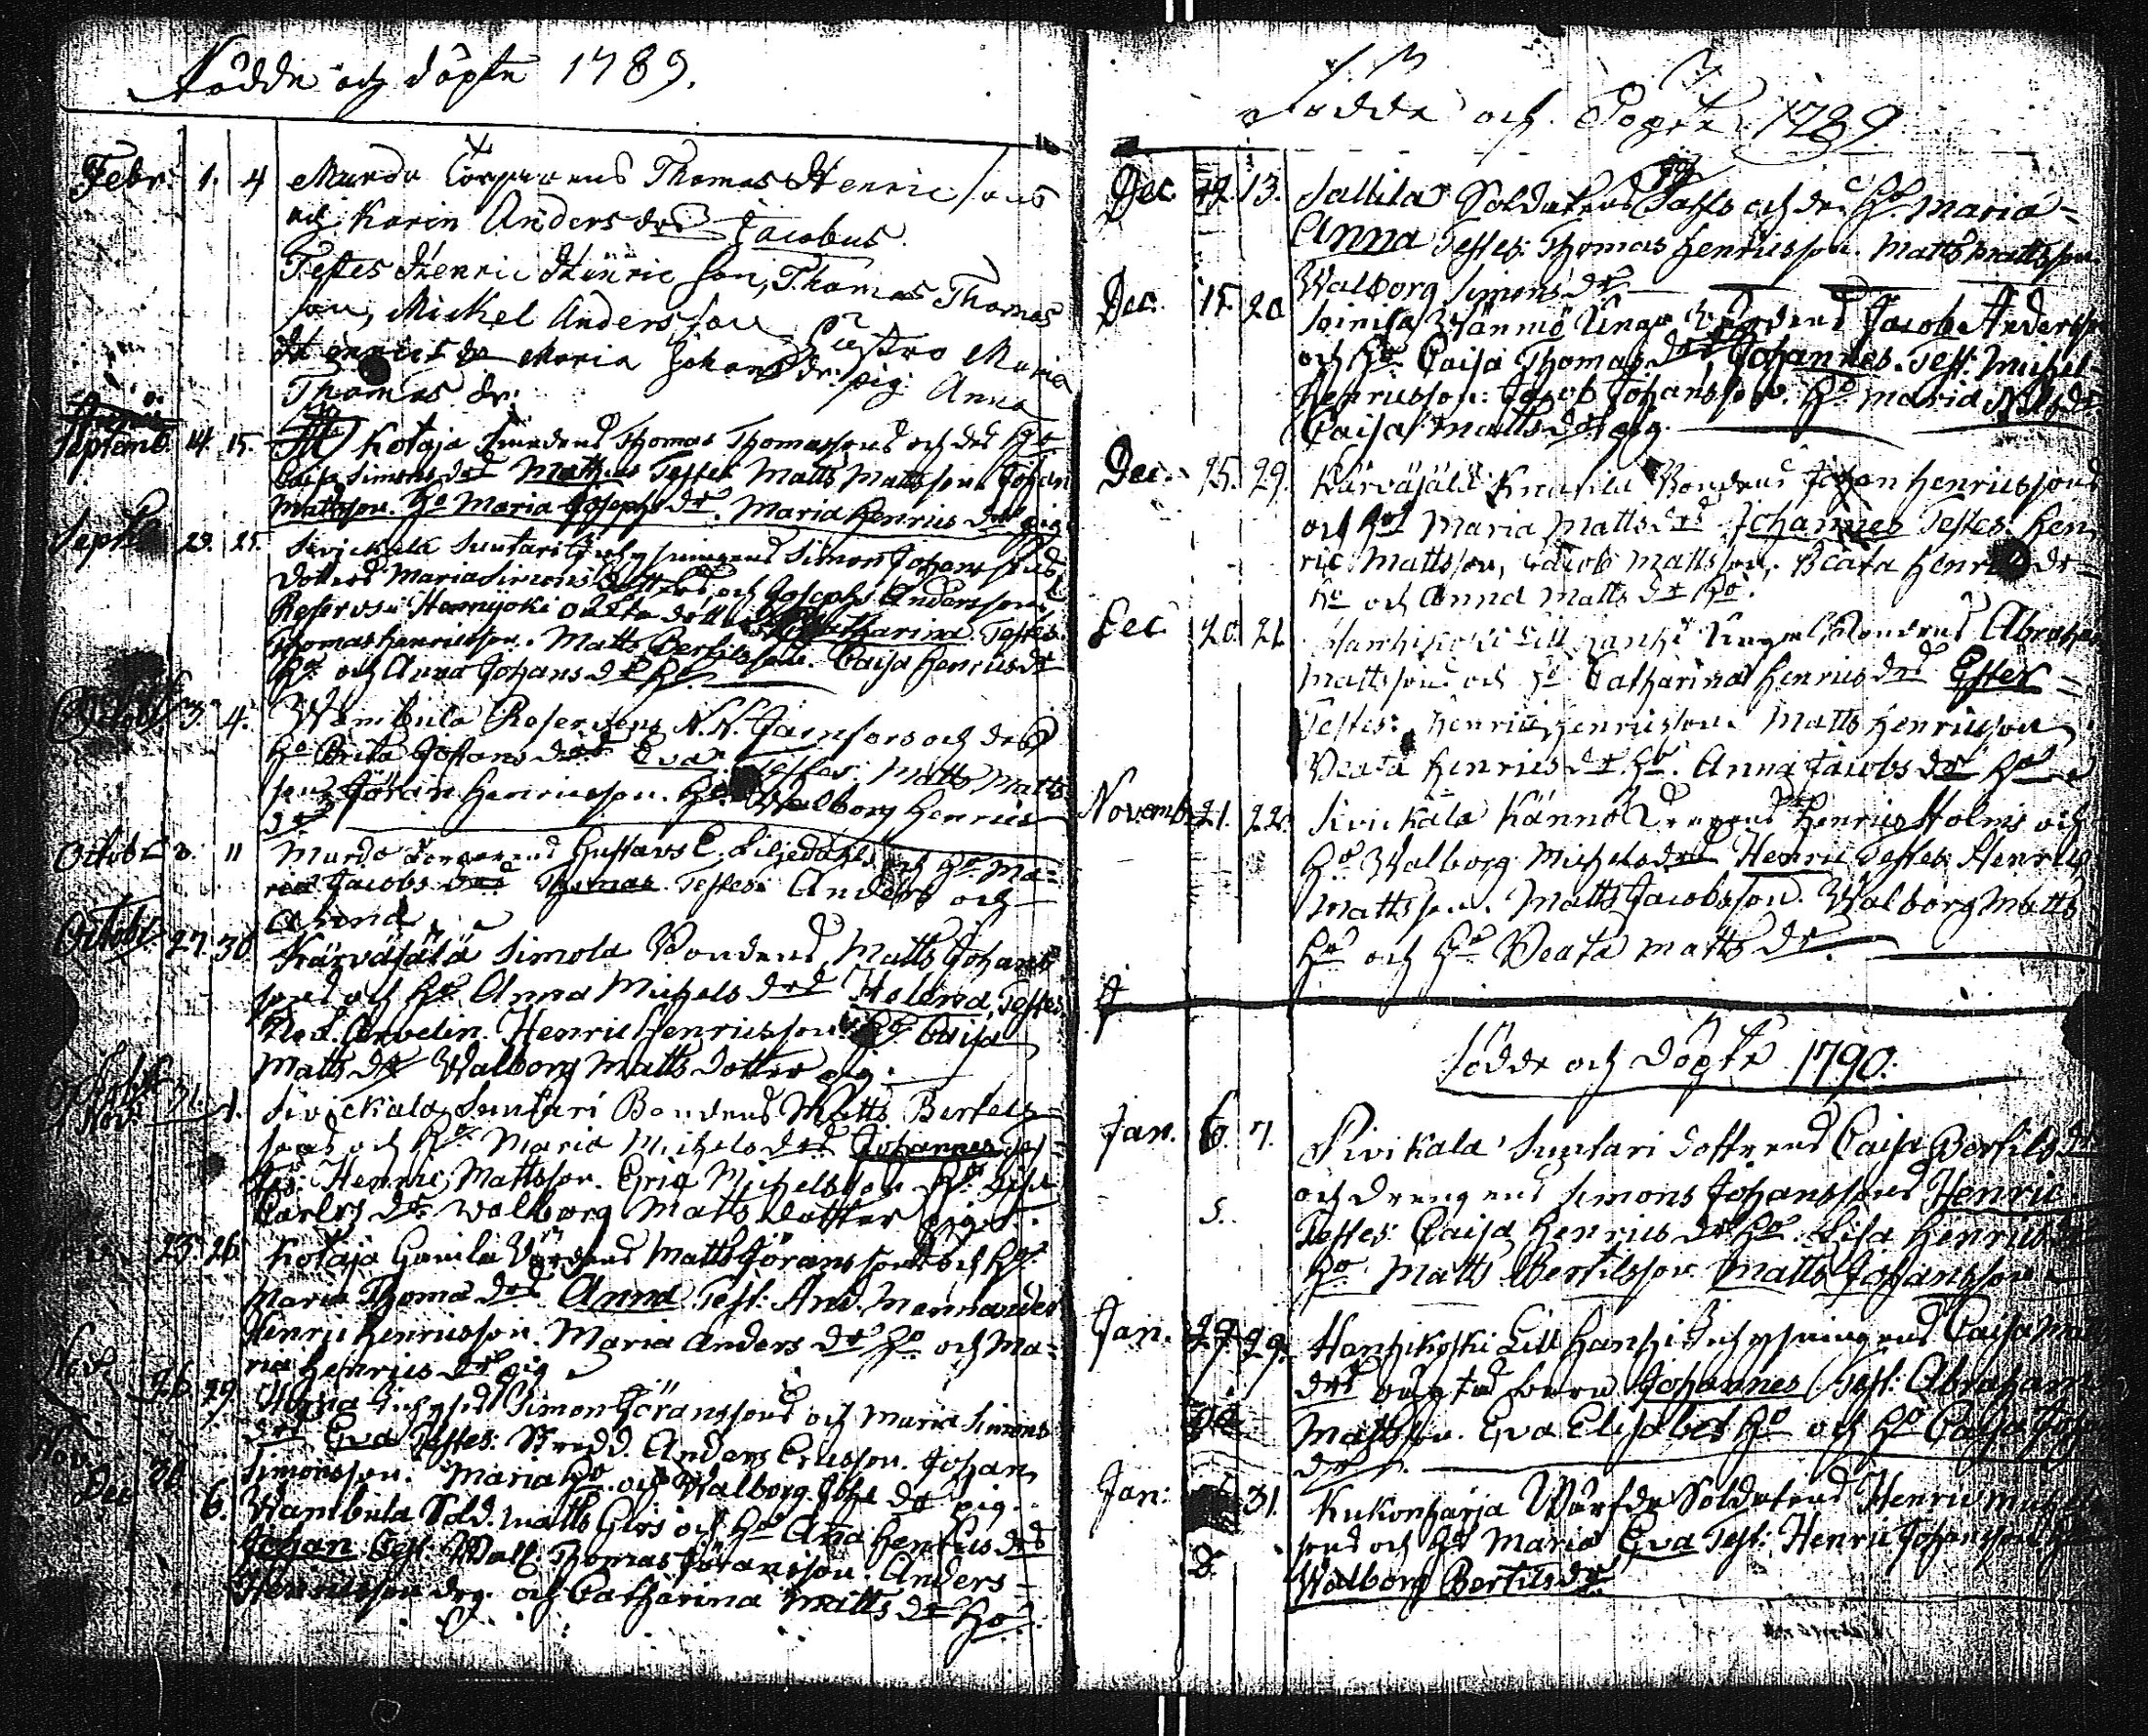 Födde och döpte 1789.
Febr. 1. 4 Murdo Torparens Thomas Henricsons
och Karin Andersdrs Jacobus.
Testes Henric Henricson, Thomas Thomas
son, Mickel Andersson Hustro Maria
Henricsdr Maria Johansdr pig Anna
Thomasdr
Septemb. 14. 15. Kotaja Thomas Thomassons och des Ho
Caisa Simonsdrs Mathias Testes Matts Mattsson Johan
Mattsson. Ho Maria Josephsdr. Maria Henricsdr pig.
Sept. 23. 25. Sivickala Suntari Inhysningens Simon Johanssons
dotters Maria Simonsdotters och Josephs Anderssons
Catharina Testes
Thomas Henricsson. Matts Bertilsson. Caisa Henricsdr
Ho och Anna Johansdr Ho.
Octobr 3. 4. Wambula Reservens N. N. Järnfors och des
Ho Brita Johansdrs Eva Testes: Matts Matts
son Jöran Henricsson. Ho Walborg Henrics
dr
Octobr 11 Murdo Torparens Gustavs C. Liljedahls och Ho Ma-
rias Jacobsdrs Thomas Testes: Anders och
Octobr. 27. 30 Kärväsälä Simola Bondens Matts Johans
sons och Ho Anna Michelsdrs Helena, Testes
Arvelin. Henric Henricsson Ho. Caisa
Mattsdr Walborg Mattsdotter pig.
Octobr 31. Nov. 1. Sivickala Suntari Bondens Matts Bertels
sons och Ho Maria Michelsdrs Johannes Tes
tes: Henric Mattsson. Eric Michelsson Ho Lisa
Carlsdr Walborg Matts dotter pig.
23. 26. Kotaja Gamila Bondens Matts Jöranssons och Ho
Maria Thomædrs Anna Test: And. Mennander
Henric Henricsson. Maria Andersdr Ho och Ma-
ria Henricsdr pig
Nov. 26. 29 Inhyses Simon Jöranssons och Maria Simons
drs Eva Testes: Anders Ericsson. Johan
Simonsson. Maria Ho och Walborg Joh. dr pig.
Nov. 30 Dec 6. Wambula Sold. Matts Girs och Ho Anna Henricsdrs
Johan Test. Thomas Jöransson. Anders
Henricsson drg. och Catharina Mattsdr Ho
Födde och Döpte 1789.
Dec 12. 13. Sallila Soldatens och des Ho Maria
Anna Testes: Thomas Henricsson. Matts Mattsson
Walborg Simonsdr
Dec. 15. 20 Wänniö Unga Bondens Jacob Anderss
och Ho Caisa Thomasdrs Johannes. Test: Michel
Henricsson: Jacob Johansson. Ho Maria Nilsdr
Caisa Mattsdr pig.
Dec. 25. 29. Kärväsälä Knuusila Bondens Johan Henricssons
och Hos Maria Mattsdrs Johannes Testes: Hen
ric Mattsson, Jacob Mattsson, Beata Henricsdr
Ho och Anna Mattsdr Ho.
Dec 20. 21. Hanhikoski Lill Hanhi Unga Bondens Abraham
Mattssons och Ho Catharina Henricsdrs Ester
Testes: Henric Henricsson. Matts Henricsson
Beata Henricsdr Ho. Anna Jacobsdr Ho
Novemb. 21. 22. Sivickala Kännö Drengens Henric Holms och
Ho Walborg Michelsdrs Henric Testes: Henric
Mattsson. Matts Jacobsson. Walborg Matts
Ho och Ho Beata Mattsdr.
Födde och Döpte 1790.
Jan. 6. 7. Sivikala Suntari Dotterens Caisa Bertilsdrs
och Drengens Simons Johanssons Henric
Testes: Caisa Henricsdr Ho. Lisa Henricsdr
Ho Matts Bertilsson. Matts Johansson
Jan. 27. 29. Hanhikoski Lill Hanhi Inhysningens Caisa Matts
drs oägta Johannes Test: Abraham
Mattsson. Eva Elisabet Ho och Ho Caisa
dr.
Jan: 31. Kukonharja Soldatens Henric Michels
sons och Ho Maria Eva Test: Henric Johansson
Walborg Bertilsdr